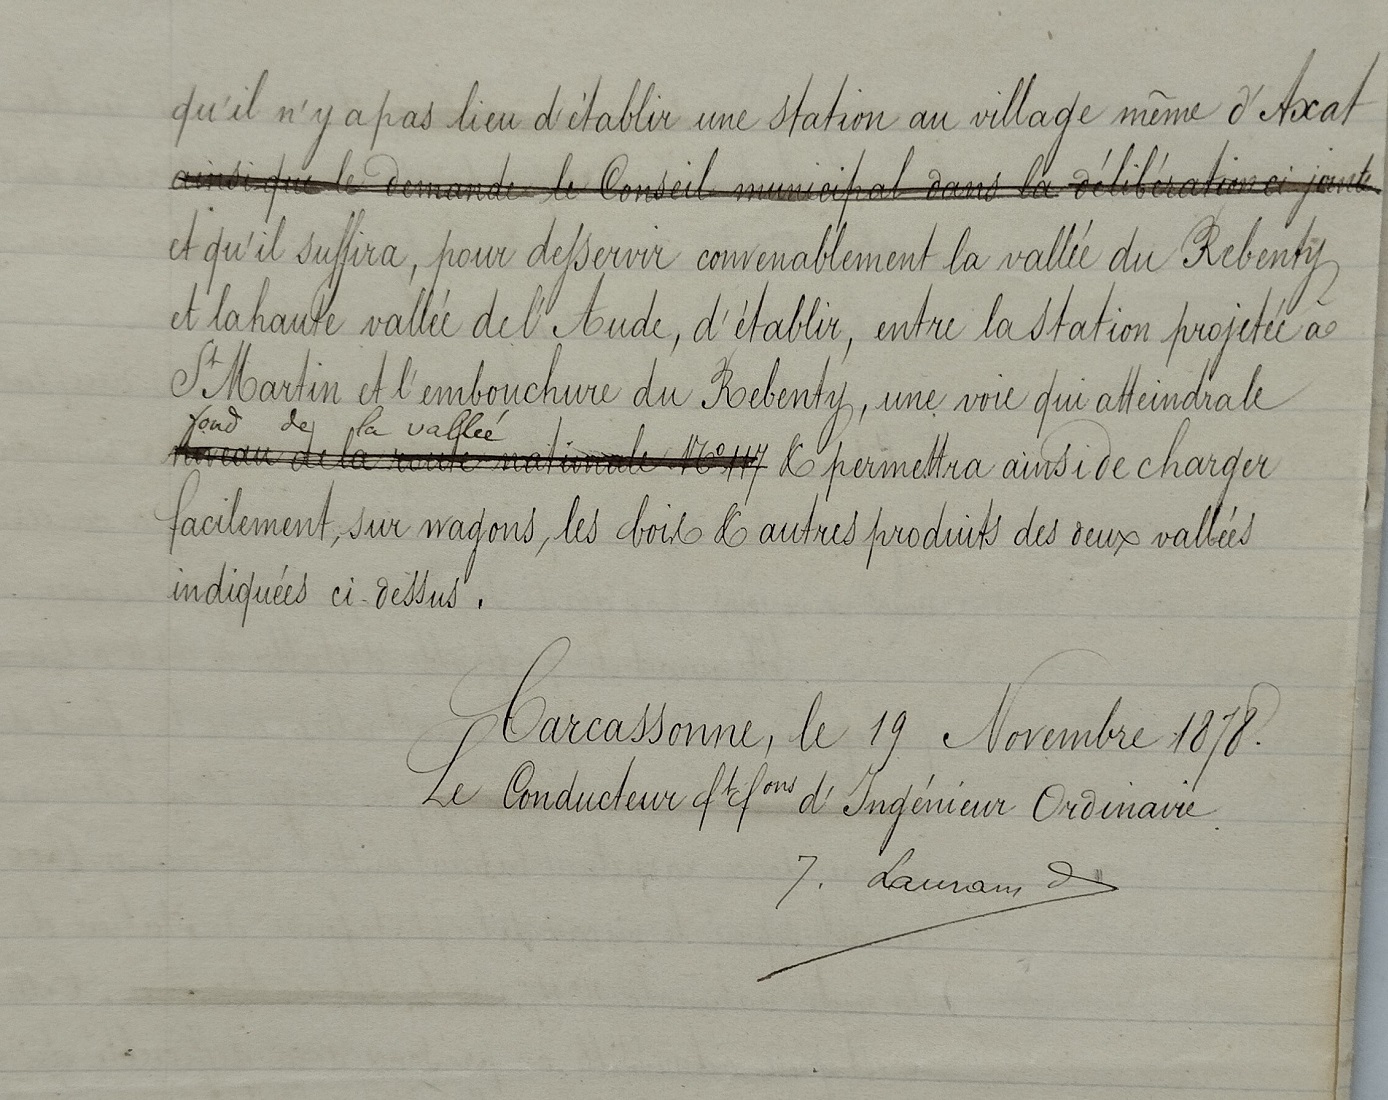 qu'il n'y a pas lieu d'établir une station au village même d'Axat
ainsi que le demande le Conseil municipal dans la délibération ci jointe
et qu'il suffira, pour desservir convenablement la vallée du Rebenty
et la haute vallée de l'Aude, d'établir, entre la station projetée à
St Martin et l'embouchure du Rebenty, une voie qui atteindra le
fond de la vallée
niveau de la route nationale No 117 & permettra ainsi de charger
facilement, sur wagons, les bois & autres produits des deux vallées
indiquées ci-dessus.
Carcassonne, le 19 Novembre 1878.
Le Conducteur ft fons d'Ingénieur Ordinaire.
J. Laurans